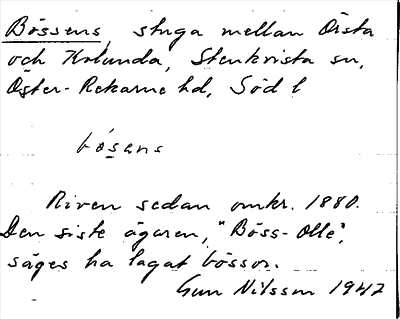 Bössens, stuga mellan Örsta
och Kolunda, Stenkvista sn,
Öster-Rekarne hd, Söd l
bö́sens
Riven sedan omkr. 1880.
Den siste ägaren, "Böss-Olle",
säges ha lagat bössor.
Gun Nilsson 1947